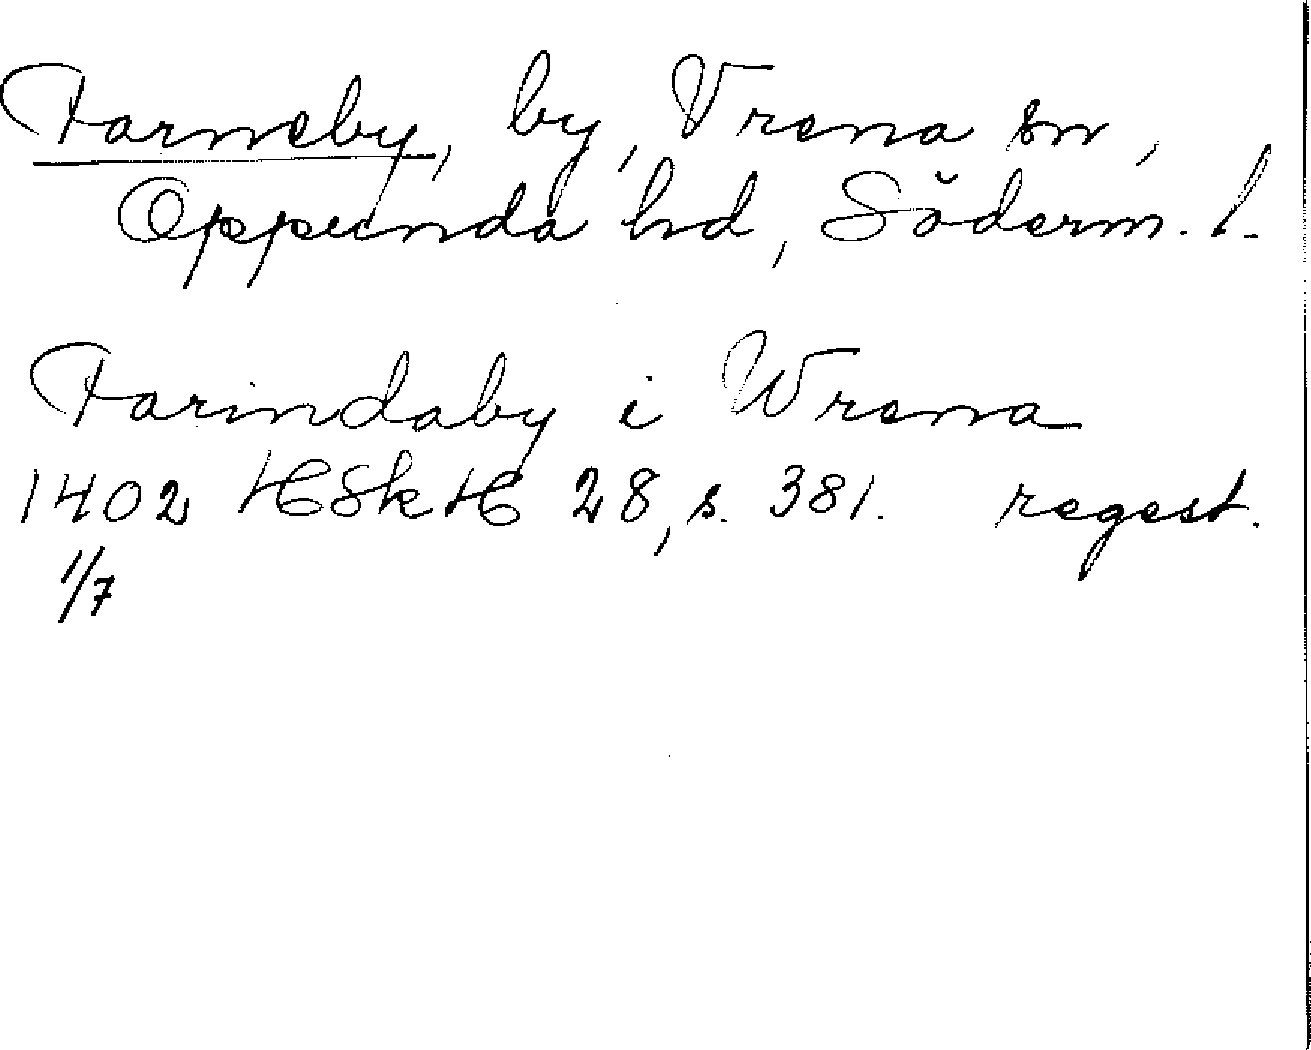 Farneby, by, Vrena sn,
Oppunda hd, Söderm. l.
Farindaby i Wrena
1402 HSkH 28, s. 381. regest.
1/7